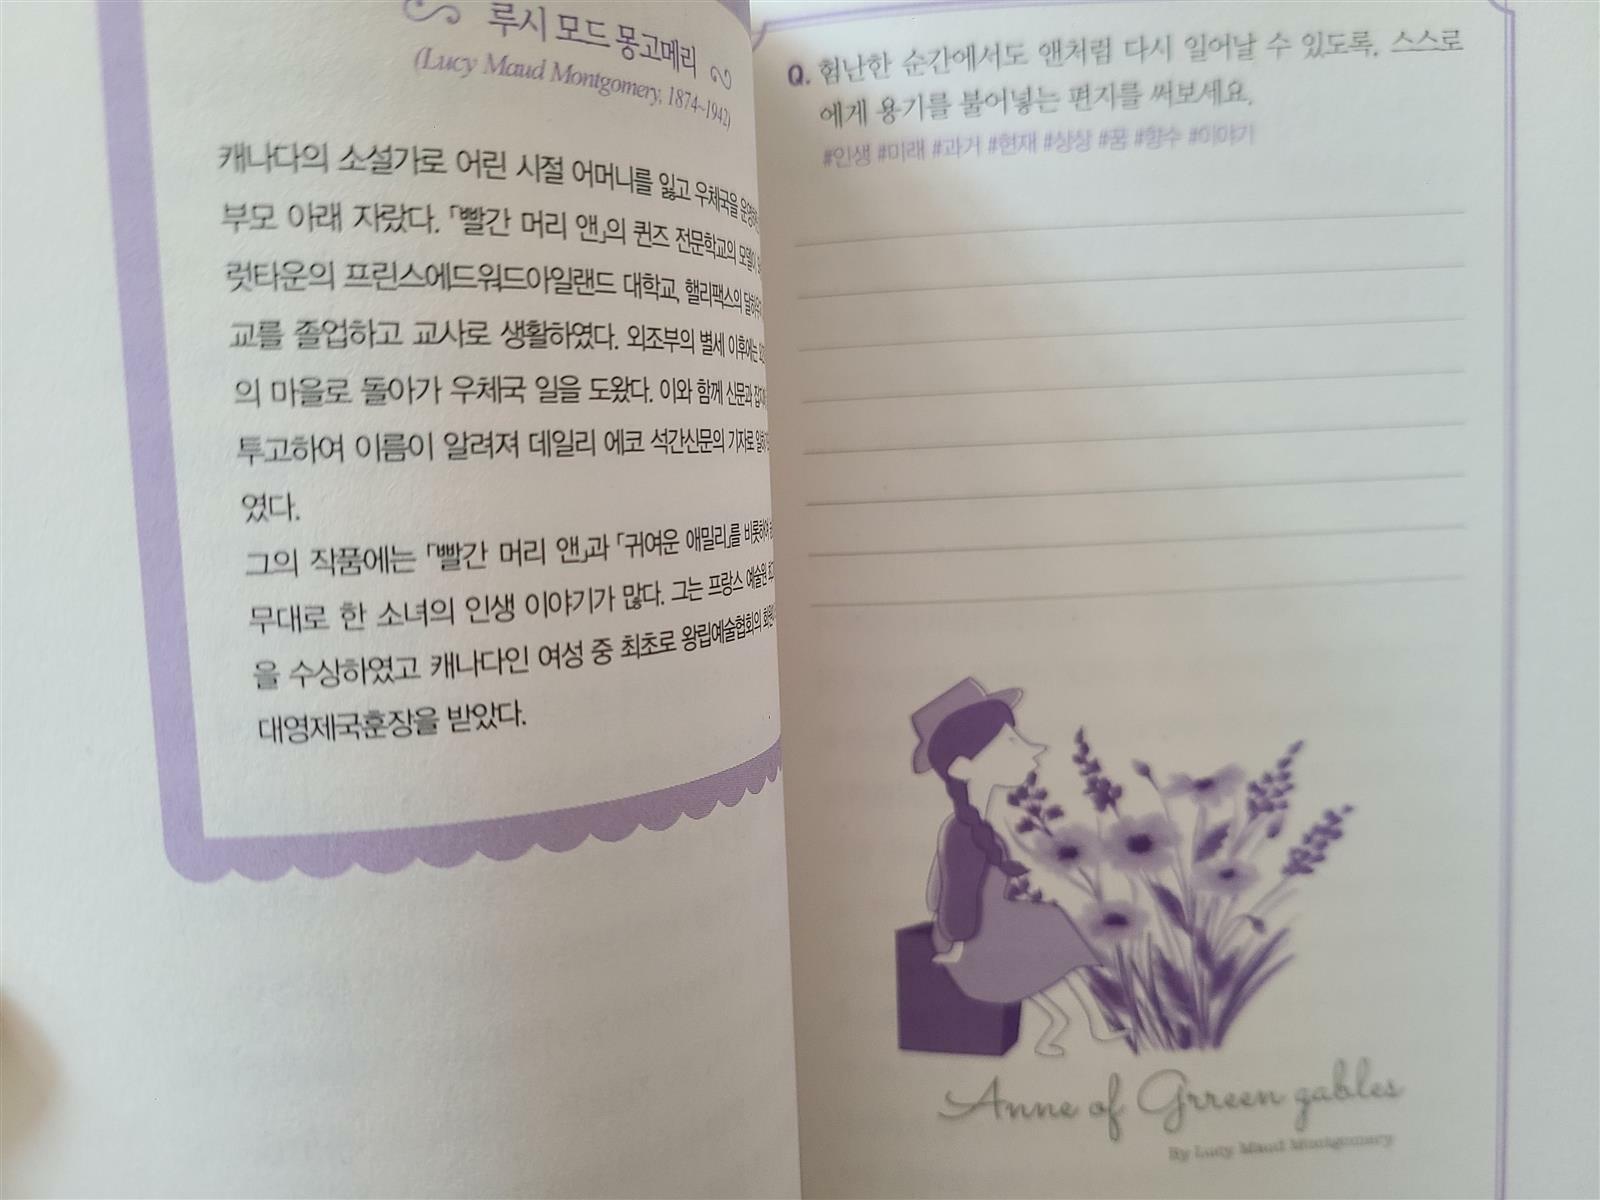 루시 모드 몽고메리
(Lucy Maud Montgomery, 1874~1942)
캐나다의 소설가로 어린 시절 어머니를 잃고 우체국을
부모 아래 자랐다. 「빨간 머리 앤」의 퀸즈 전문학교의
럿타운의 프린스에드워드아일랜드 대학교, 핼리팩스의
교를 졸업하고 교사로 생활하였다. 외조부의 별세 이후에는
의 마을로 돌아가 우체국 일을 도왔다. 이와 함께 신문과
투고하여 이름이 알려져 데일리 에코 석간신문의 기자로
였다.
그의 작품에는 「빨간 머리 앤」과 「귀여운 애밀리」를 비롯하여
무대로 한 소녀의 인생 이야기가 많다. 그는 프랑스 예술원
을 수상하였고 캐나다인 여성 중 최초로 왕립예술협회의
대영제국훈장을 받았다.
Q. 험난한 순간에서도 앤처럼 다시 일어날 수 있도록, 스스로
에게 용기를 불어넣는 편지를 써보세요.
#인생 #미래 #과거 #현재 #상상 #꿈 #향수 #이야기
Anne of Grreen gables
By Lucy Maud Montgomery